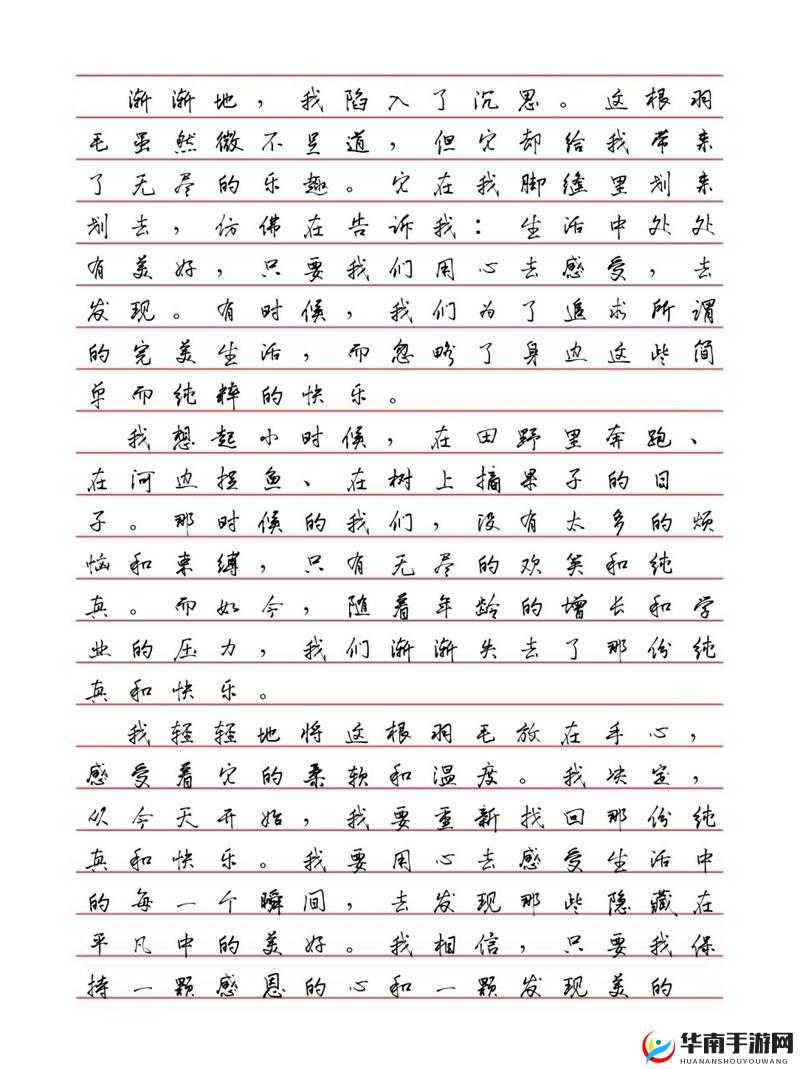 渐渐地，我陷入了沉思。这根羽
毛虽然微不足道，但它却给我带来
了无尽的乐趣。它在我脚缝里划来
划去，仿佛在告诉我：生活中处处
有美好，只要我们用心去感受，去
发现。有时候，我们为了追求所谓
的完美生活，而忽略了身边这些简
单而纯粹的快乐。
我想起小时候，在田野里奔跑、
在河边捉鱼、在树上摘果子的日
子。那时候的我们，没有太多的烦
恼和束缚，只有无尽的欢笑和纯
真。而如今，随着年龄的增长和学
业的压力，我们渐渐失去了那份纯
真和快乐。
我轻轻地将这根羽毛放在手心，
感受着它的柔软和温度。我决定，
从今天开始，我要重新找回那份纯
真和快乐。我要用心去感受生活中
的每一个瞬间，去发现那些隐藏在
平凡中的美好。我相信，只要我保
持一颗感恩的心和一颗发现美的
华南手游网
HUANANSHOUYOUWANG